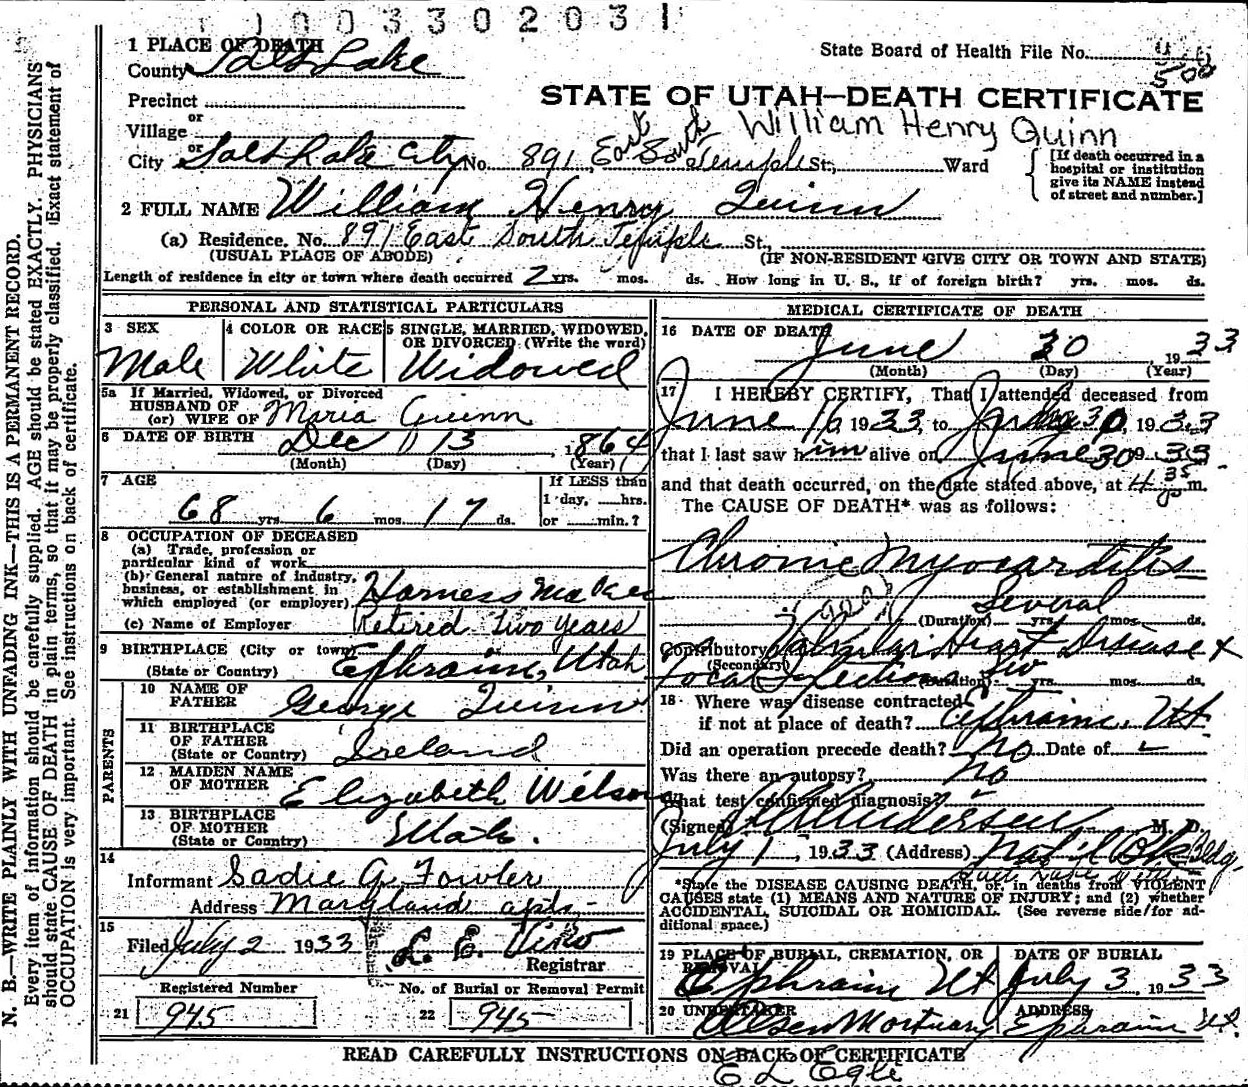 1003302031
1 PLACE OF DEATH
County Salt Lake
State Board of Health File No.
500
Precinct
STATE OF UTAH—DEATH CERTIFICATE
or
Village
William Henry Quinn
or
City Salt Lake City No. 891 East South Temple St., Ward
[If death occurred in a hospital or institution give its NAME instead of street and number.]
2 FULL NAME William Henry Quinn
(a) Residence. No. 891 East South Temple St.,
(USUAL PLACE OF ABODE) (IF NON-RESIDENT GIVE CITY OR TOWN AND STATE)
Length of residence in city or town where death occurred 2 yrs. mos. ds. How long in U. S., if of foreign birth? yrs. mos. ds.
PERSONAL AND STATISTICAL PARTICULARS
3 SEX 4 COLOR OR RACE 5 SINGLE, MARRIED, WIDOWED, OR DIVORCED (Write the word)
Male White Widowed
5a If Married, Widowed, or Divorced
HUSBAND OF
(or) WIFE OF Maria Quinn
6 DATE OF BIRTH Dec 13, 1864
(Month) (Day) (Year)
7 AGE
If LESS than
1 day, hrs.
or min.?
68 yrs. 6 mos. 17 ds.
8 OCCUPATION OF DECEASED
(a) Trade, profession or
particular kind of work
(b) General nature of industry,
business, or establishment in
which employed (or employer) Harness Maker
(c) Name of Employer Retired two years
9 BIRTHPLACE (City or town)
(State or Country) Ephraim, Utah
PARENTS
10 NAME OF
FATHER George Quinn
11 BIRTHPLACE
OF FATHER
(State or Country) Ireland
12 MAIDEN NAME
OF MOTHER Elizabeth Wilson
13 BIRTHPLACE
OF MOTHER
(State or Country) Utah.
14
Informant Sadie G. Fowler
Address Maryland apts-
15
Filed July 2 1933 L. E. Viko
Registrar
Registered Number No. of Burial or Removal Permit
21 945 22 945
MEDICAL CERTIFICATE OF DEATH
16 DATE OF DEATH June 30, 1933
(Month) (Day) (Year)
17 I HEREBY CERTIFY, That I attended deceased from
June 16, 1933, to June 30, 1933
that I last saw him alive on June 30 1933
and that death occurred, on the date stated above, at 4 35 m.
The CAUSE OF DEATH* was as follows:
Chronic Myocarditis
Several years
(Duration) yrs. mos. ds.
Contributory Valvular Heart Disease +
(Secondary)
Focal Infection
(Duration) yrs. mos. ds.
18 Where was disease contracted
if not at place of death? Ephraim, Ut
Did an operation precede death? No Date of
Was there an autopsy? No
What test confirmed diagnosis?
(Signed) Andersen M. D.
July 1, 1933 (Address) Nat'l Bk Bldg,
Salt Lake City
*State the DISEASE CAUSING DEATH, or, in deaths from VIOLENT
CAUSES state (1) MEANS AND NATURE OF INJURY; and (2) whether
ACCIDENTAL, SUICIDAL OR HOMICIDAL. (See reverse side for ad-
ditional space.)
19 PLACE OF BURIAL, CREMATION, OR REMOVAL DATE OF BURIAL
Ephraim Ut July 3, 1933
20 UNDERTAKER ADDRESS
Olsen Mortuary Ephraim Ut.
READ CAREFULLY INSTRUCTIONS ON BACK OF CERTIFICATE
E L Egli
N. B.—WRITE PLAINLY WITH UNFADING INK—THIS IS A PERMANENT RECORD.
Every item of information should be carefully supplied. AGE should be stated EXACTLY. PHYSICIANS
should state CAUSE OF DEATH in plain terms, so that it may be properly classified. Exact statement of
OCCUPATION is very important. See instructions on back of certificate.